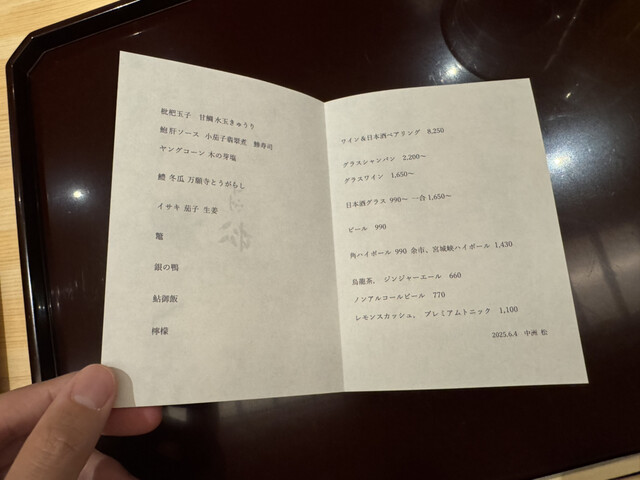 枇杷玉子　甘鯛 水玉きゅうり
鮑肝ソース　小茄子翡翠煮　鯵寿司
ヤングコーン 木の芽塩
鱧 冬瓜 万願寺とうがらし
イサキ 茄子 生姜
鼈
銀の鴨
鮎御飯
檸檬
ワイン＆日本酒ペアリング　8,250
グラスシャンパン　2,200～
グラスワイン　1,650～
日本酒グラス 990～ 一合 1,650～
ビール　990
角ハイボール 990 余市、宮城峡ハイボール 1,430
烏龍茶、ジンジャーエール　660
ノンアルコールビール　770
レモンスカッシュ、プレミアムトニック　1,100
2025.6.4　中洲 松